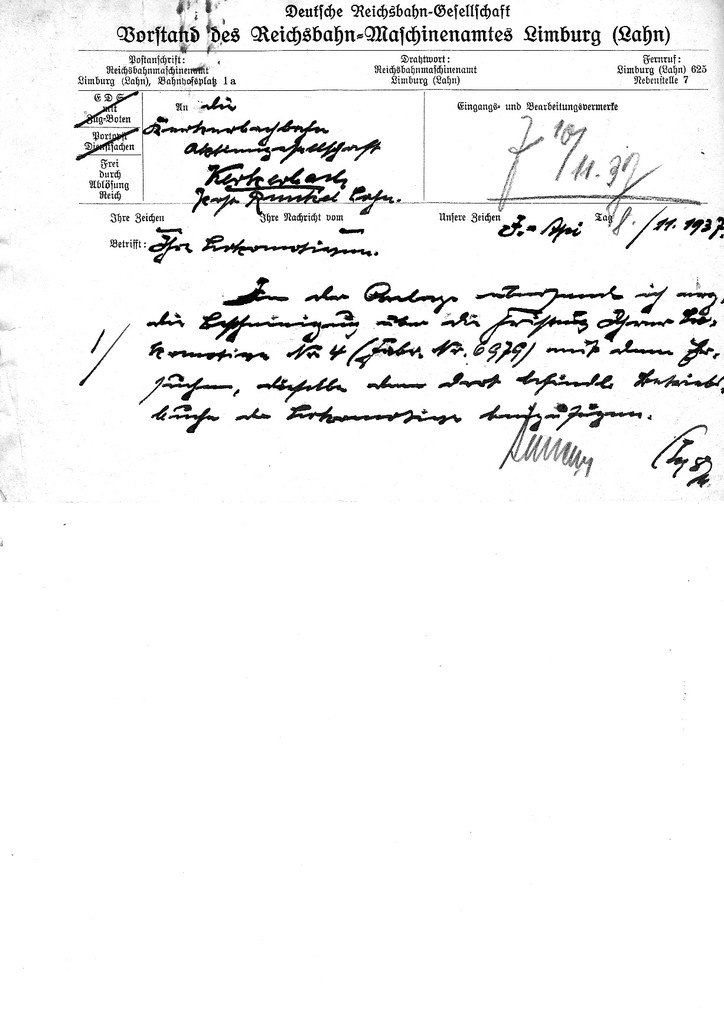 Deutsche Reichsbahn-Gesellschaft
Vorstand des Reichsbahn-Maschinenamtes Limburg (Lahn)
Postanschrift:
Reichsbahnmaschinenamt
Limburg (Lahn), Bahnhofsplatz 1a
Drahtwort:
Reichsbahnmaschinenamt
Limburg (Lahn)
Fernruf:
Limburg (Lahn) 625
Nebenstelle 7
E D S
mit
Zug-Boten
Portopfl
Dienstsachen
Frei
durch
Ablösung
Reich
An die
Kerkerbachbahn
Aktiengesellschaft
Kerkerbach
Post Runkel Lahn.
Eingangs- und Bearbeitungsvermerke
10/11. 37
Ihre Zeichen
Ihre Nachricht vom
Unsere Zeichen
Tag
8./11.1937.
Betrifft: Ihre Lokomotiven.
In der Anlage übersende ich
die Bescheinigung über die Fristung Ihrer Lo-
1/
komotive Nr 4 (Fabr. Nr. 6979) mit dem Er-
suchen, dieselbe dem dort befindl. Betriebs-
buche der Lokomotive beizufügen.